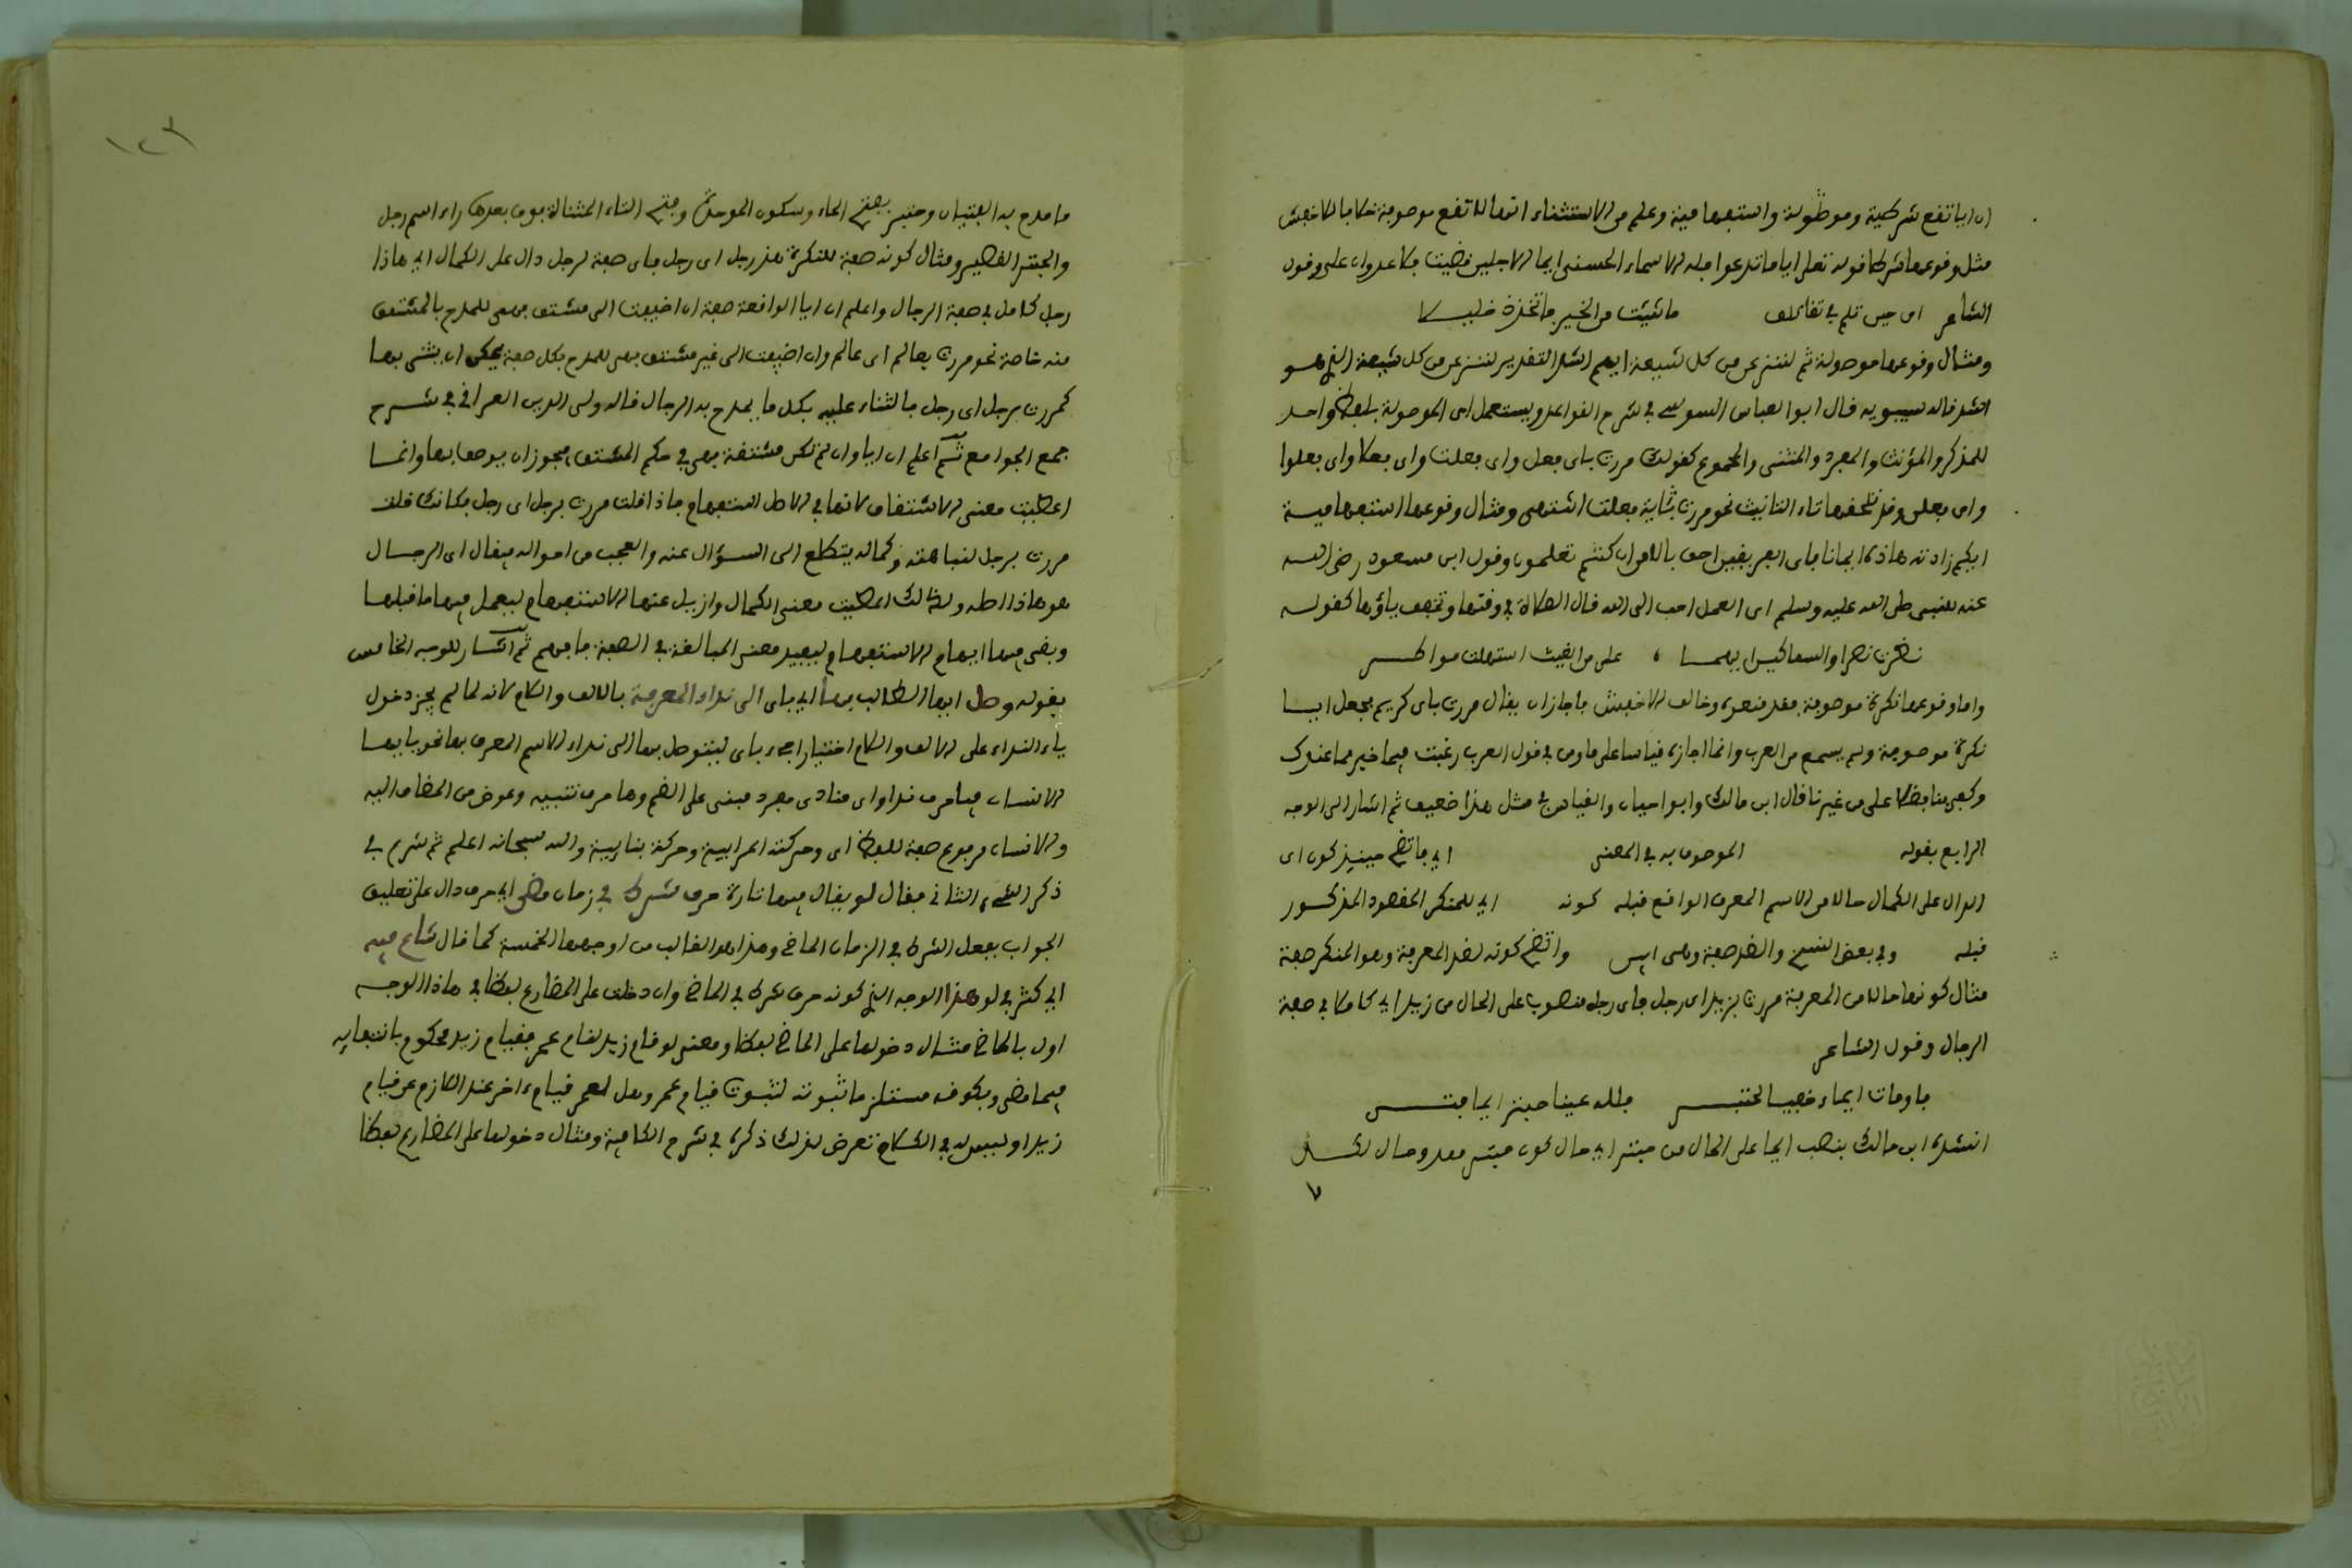 ان ايا تقع شرطية وموصولة واستفهامية وعلم من الاستثناء انها لا تقع موصوفة خلافا للاخفش
مثل وقوعها شرطا قوله تعلى اياما تدعوا فله الاسماء الحسنى ايما الاجلين قضيت فلا عدوان على وقول
الشاعر اى حين تلم بى تلق ما شئت من الخير فاتخذنى خليلا
ومثال وقوعها موصولة ثم لننزعن من كل شيعة ايهم اشد التقدير لننزعن من كل شيعة الذى هو
اشد قاله سيبويه قال ابو العباس السوسى فى شرح القواعد ويستعمل اى الموصولة بلفظ واحد
للمذكر والمؤنث والمفرد والمثنى والمجموع كقولك مررت باى فعل واى فعلت واى فعلا واى فعلوا
واى فعلن وقد تلحقها تاء التانيث نحو مررت باية فعلت انتهى ومثال وقوعها استفهامية
ايكم زادته هاذه ايمانا فاى الفريقين احق بالامن ان كنتم تعلمون وقول ابن مسعود رضى الله
عنه للنبى صلى الله عليه وسلم اى العمل احب الى الله قال الصلاة فى وقتها وتخفف ياؤها كقوله
نظرت نصرا والسماكين ايهما على من الغيث استهلت مواطره
واما وقوعها نكرة موصوفة فقد منعوه وخالف الاخفش فاجاز ان يقال مررت باى كريم فجعل ايا
نكرة موصوفة ولم يسمع من العرب وانما اجازه قياسا على ما ومن فى قول العرب رغبت فيما خير مما عندك
وكفى بنا فضلا على من غيرنا قال ابن مالك وابو حيان والقياس فى مثل هذا ضعيف ثم اشار الى الوجه
الرابع بقوله الموصوف به فى المعنى اى فاتضح حينئذ كون اى
الدال على الكمال حالا من الاسم المعرف الواقع قبله كونه اى للمنكر المقصود المذكور
قبله وفى بعض النسخ والضد صفة وهى ابين واتضح كونه لضد المعرفة وهو المنكر صفة
مثال كونها حالا من المعرفة مررت بزيد اى رجل فاى رجل منصوب على الحال من زيد اى كاملا فى صفة
الرجال وقول الشاعر
فاومات ايماء خفيا لحبتر فلله عينا حبتر ايما فتى
انشده ابن مالك بنصب ايما على الحال من حبتر اى حال كون حبتر
ما مدح به الفتيان وحبتر بفتح الحاء وسكون الموحدة وفتح التاء المثناة فوق بعدها راء اسم رجل
والحبتر القصير ومثال كونه صفة للنكرة هذا رجل اى رجل فاى صفة لرجل دال على الكمال اى هاذا
رجل كامل فى صفة الرجال واعلم ان ايا الواقعة صفة ان اضيفت الى مشتق فهى للمدح بالمشتق
منه خاصة نحو مررت بعالم اى عالم وان اضيفت الى غير مشتق فهى للمدح بكل صفة يمكن ان يثنى بها
كمررت برجل اى رجل فالثناء عليه بكل ما يمدح به الرجال قاله ولى الدين العراقى فى شرح
جمع الجوامع ثم اعلم ان ايا وان لم تكن مشتقة فهى فى حكم المشتق فيجوز ان يوصف بها وانما
اعطيت معنى الاشتقاق لانها فى الاصل استفهام فاذا قلت مررت برجل اى رجل فكانك قلت
مررت برجل لنباهته وكماله يتطلع الى السؤال عنه والعجب من احواله فيقال اى الرجال
هو هاذا اصله ولذالك اعطيت معنى الكمال وازيل عنها الاستفهام ليعمل فيها ما قبلها
وبقى فيها ابهام الاستفهام ليفيد معنى المبالغة فى الصفة فافهم ثم اشار للوجه الخامس
بقوله وصل ايها الطالب بها اى باى الى نداء المعرفة بالالف واللام لانه لما لم يجز دخول
ياء النداء على الالف واللام اختيارا جيء باى ليتوصل بها الى نداء الاسم المعرف بها نحو يا ايها
الانسان فيا حرف نداء واى منادى مفرد مبنى على الضم وها حرف تنبيه وعوض من المضاف اليه
والانسان مرفوع صفة للفظ اى وحركته اعرابية وحركة بنائية والله سبحانه اعلم ثم شرع فى
ذكر الشىء الثانى فقال لو يقال فيها تارة حرف شرط فى زمان مضى اى حرف دال على تعليق
الجواب بفعل الشرط فى الزمان الماضى وهذا هو الغالب من اوجهها الخمسة كما قال شاع فيه
اى كثر فى لو هذا الوجه الذى كونه حرف شرط فى الماضى وان دخلت على المضارع لفظا فى هاذا الوجه
اول بالماضى مثال دخولها على الماضى لفظا ومعنى لو قام زيد لقام عمرو فقيام زيد محكوم بانتفائه
فيما مضى وبكونه مستلزما ثبوته لثبوت قيام عمرو وهل لعمرو قيام ءاخر عند اللازم عن قيام
زيد او ليس له فى الكلام تعرض لذلك ذكره فى شرح الكافية ومثال دخولها على المضارع لفظا